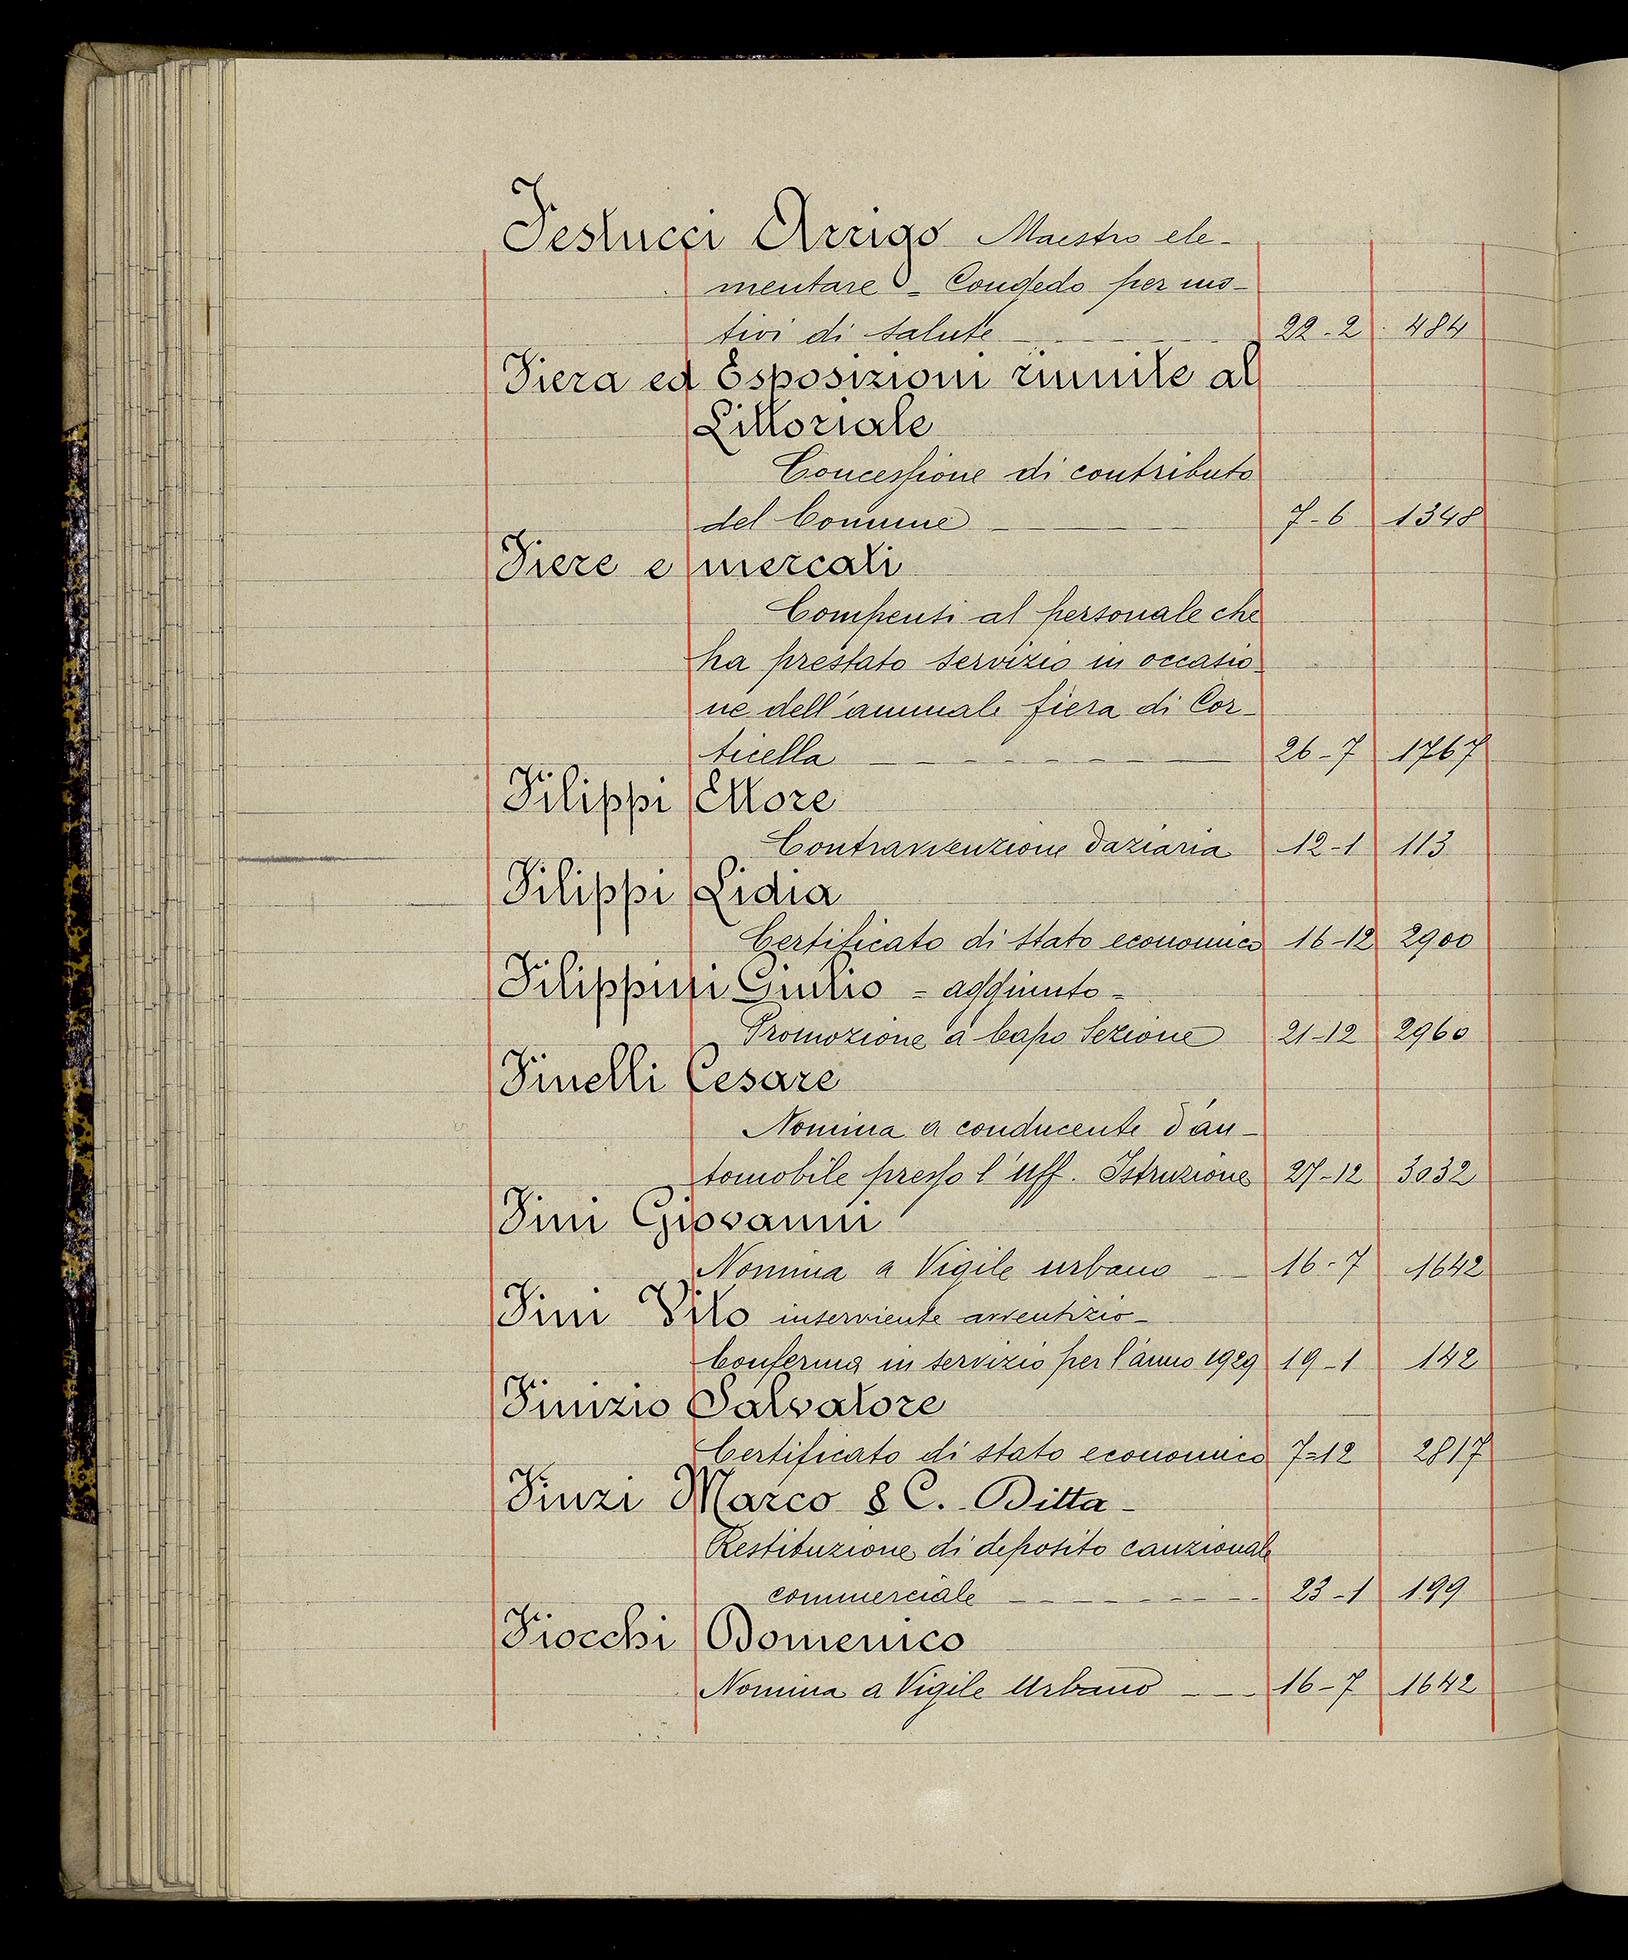 Festucci Arrigo Maestro ele-
mentare = Congedo per mo-
tivi di salute 22-2 484
Fiera ed Esposizioni riunite al
Littoriale
Concessione di contributo
del Comune 7-6 1348
Fiere e mercati
Compensi al personale che
ha prestato servizio in occasio-
ne dell'annuale fiera di Cor-
ticella 26-7 1767
Filippi Ettore
Contravvenzione daziaria 12-1 113
Filippi Lidia
Certificato di stato economico 16-12 2900
Filippini Giulio = aggiunto =
Promozione a Capo Sezione 21-12 2960
Finelli Cesare
Nomina a conducente d'au-
tomobile presso l'Uff. Istruzione 27-12 3032
Fini Giovanni
Nomina a Vigile urbano 16-7 1642
Fini Vito inserviente avventizio-
Conferma in servizio per l'anno 1929 19-1 142
Finizio Salvatore
Certificato di stato economico 7=12 2817
Finzi Marco & C. Ditta -
Restituzione di deposito cauzionale
commerciale 23-1 199
Fiocchi Domenico
Nomina a Vigile Urbano 16-7 1642